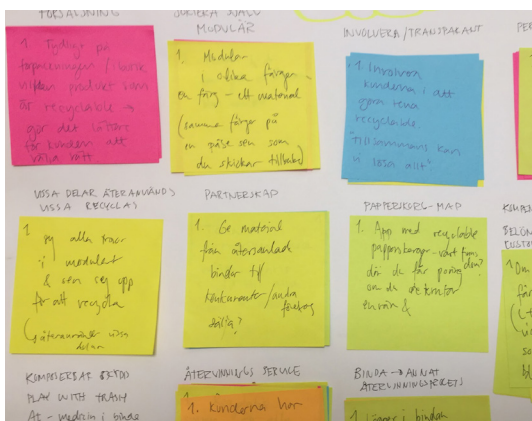 FÖRSÄLJNING
1. Tydligt på
förpackningen / butik
vilken produkt som
är recyclable →
gör det lättare
för kunden att
välja rätt
MODULÄR
1. Modular
i olika färger -
en färg - ett material
(samma färger på
en påse sen som
du skickar tillbaka)
INVOLVERA/TRANSPARANT
1. Involvera
kunderna i att
göra rena
recyclable.
"Tillsammans kan
vi lösa allt"
VISSA DELAR ÅTERANVÄNDS
VISSA RECYCLAS
1
sy alla
i moduler
& sen sy upp
för att recycla
återanvänder vissa
delar
PARTNERSKAP
1. Ge material
från återsamlad
bindor till
konkurrenter/andra
företag
sälja?
PAPPERSKORG-MAP
1. App med recyclable
papperskorgar - vart finns
där du får poäng
om du
KOMPOSTERBAR SKYDD
PLAY WITH TRASH
AI - medicin i binda
ÅTERVINNINGS SERVICE
1. Kunderna har
BINDA → ANNAT
ÅTERVINNINGSPROJEKTS
1. Lägger i bindan